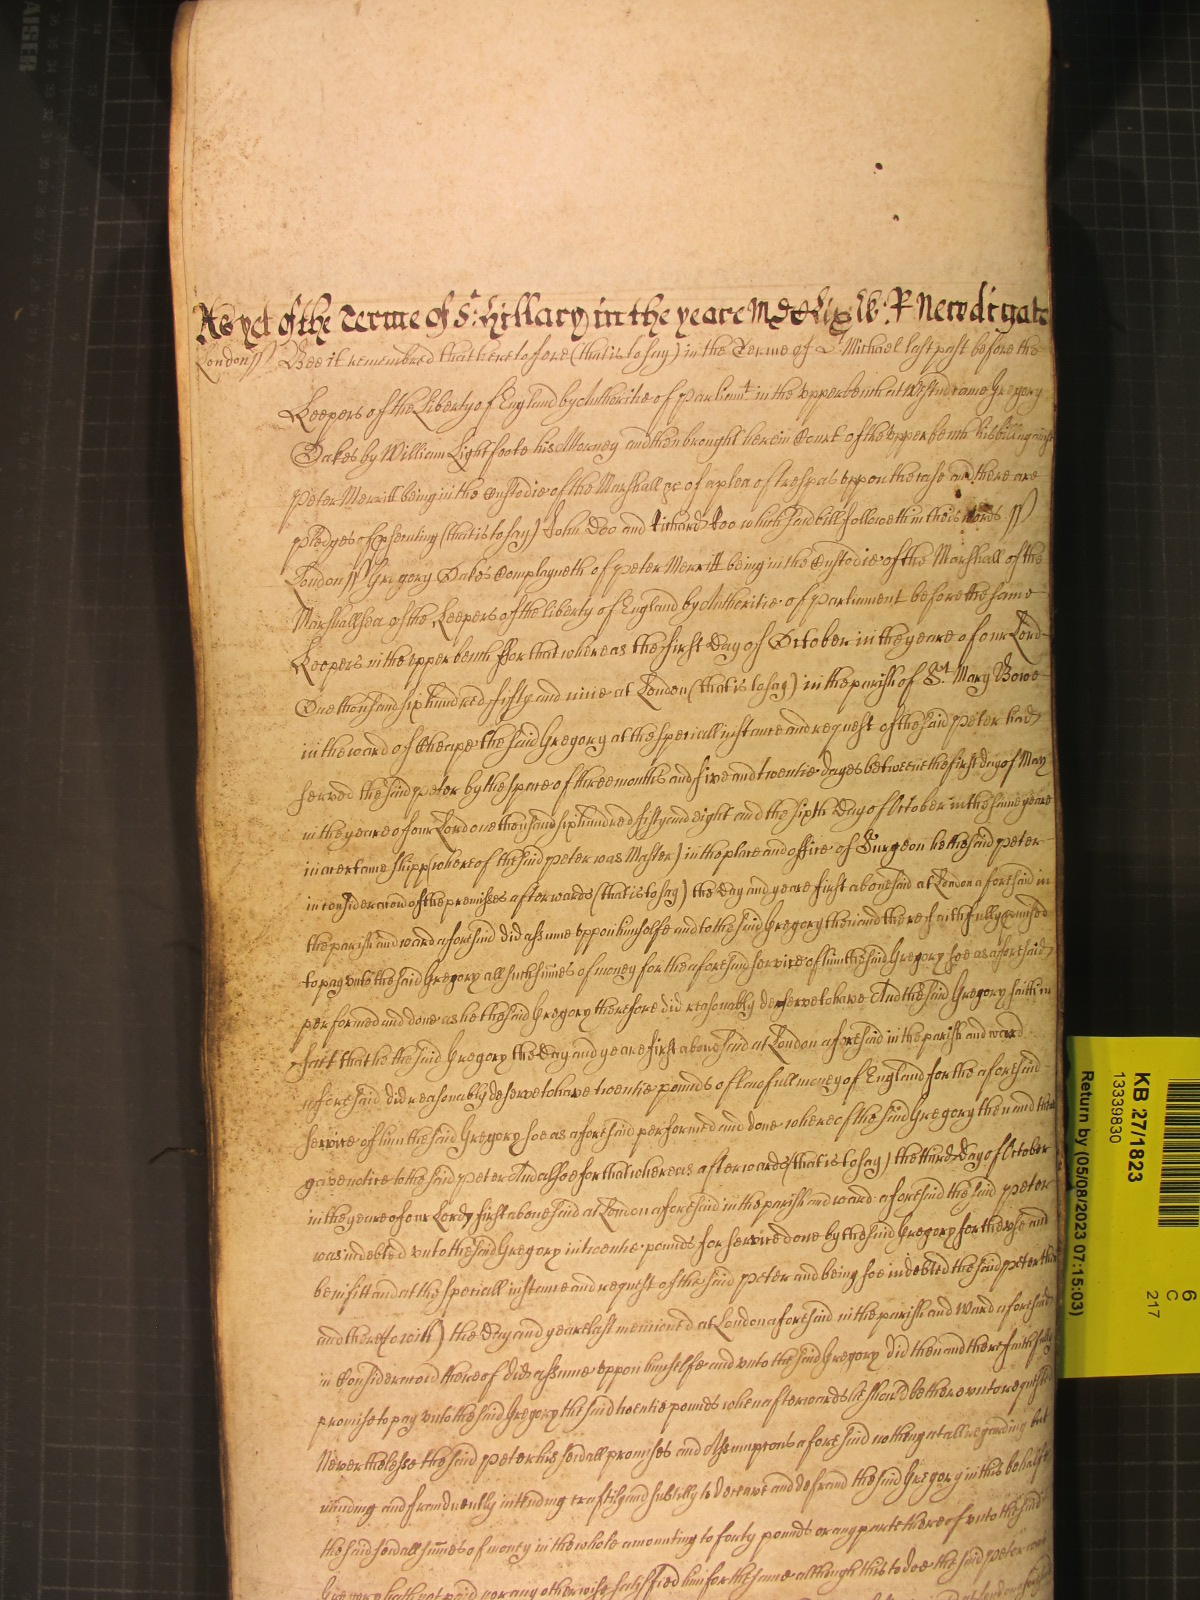 As yet of the Terme of St. Hillary in the yeare MDCLix. W: P Newdigate
London ss Bee it remembred that heretofore (that is to say) in the Terme of St. Michael last past before the
Keepers of the Liberty of England by Authoritie of parliamt. in the upper bench at Westm came Gregory
Oakes by William Lightfoote his Attorney and then brought here in Court of the upper bench his bill against
Peter Merritt being in the Custodie of the Marshall &c of a plea of trespas uppon the case and there are
pledges of prosecuting (that is to say) John Doo and Richard Roo which said bill followeth in theis words ss
London ss Gregory Oakes Complayneth of Peter Merritt being in the Custodie of the Marshall of the
Marshallsea of the Keepers of the liberty of England by Authoritie of parliament before the same
Keepers in the upper bench ffor that whereas the first Day of October in the yeare of our Lord
One thousand six hundred fifty and nine at London (that is to say) in the parish of St. Mary Bowe
in the ward of Cheape the said Gregory at the speciall instance and request of the said Peter had
served the said Peter by the space of three months and five and twentie dayes betweene the first day of May
in the yeare of our Lord one thousand six hundred fifty and eight and the sixth Day of October in the same yeare
in a certaine shipp (whereof the said Peter was Master) in the place and office of Surgeon hee the said Peter
in consideracion of the premisses afterwards (that is to say) the Day and yeare first abovesaid at London aforesaid in
the parish and ward aforesaid did assume uppon himselfe and to the said Gregory then and there faithfully promised
to pay unto the said Gregory all such sumes of money for the aforesaid service of him the said Gregory soe as aforesaid
performed and done as he the said Gregory therefore did reasonably deserve to have And the said Gregory saith in
fact that he the said Gregory the Day and yeare first abovesaid at London aforesaid in the parish and ward
aforesaid did reasonably deserve to have twentie pounds of lawfull money of England for the aforesaid
service of him the said Gregory soe as aforesaid performed and done whereof the said Gregory then and there
gave notice to the said Peter And alsoe for that whereas afterwards (that is to say) the third Day of October
in the yeare of our Lord first abovesaid at London aforesaid in the parish and ward aforesaid the said Peter
was indebted unto the said Gregory in twentie pounds for service done by the said Gregory for the use and
benifitt and at the speciall instance and request of the said Peter and being soe indebted the said Peter then
and there (to wit) the Day and yeare last mencioned at London aforesaid in the parish and Ward aforesaid
in Consideracion thereof did assume uppon himselfe and unto the said Gregory did then and there faithfully
promise to pay unto the said Gregory the said twentie pounds when afterwards he should be thereunto requested
Neverthelesse the said Peter his said all promises and Assumpcions aforesaid nothing at all regarding but
minding and fraudulently intending craftily and subtilly to deceave and defraud the said Gregory in this behalfe
the said sevall sumes of money in the whole amounting to forty pounds or any parte thereof unto the said
Gregory hath not paid nor any otherwise satisfied him for the same although this to doe the said Peter
KB 27/1823
13339830
Return by (05/08/2023 07:15:03)
6
C
217